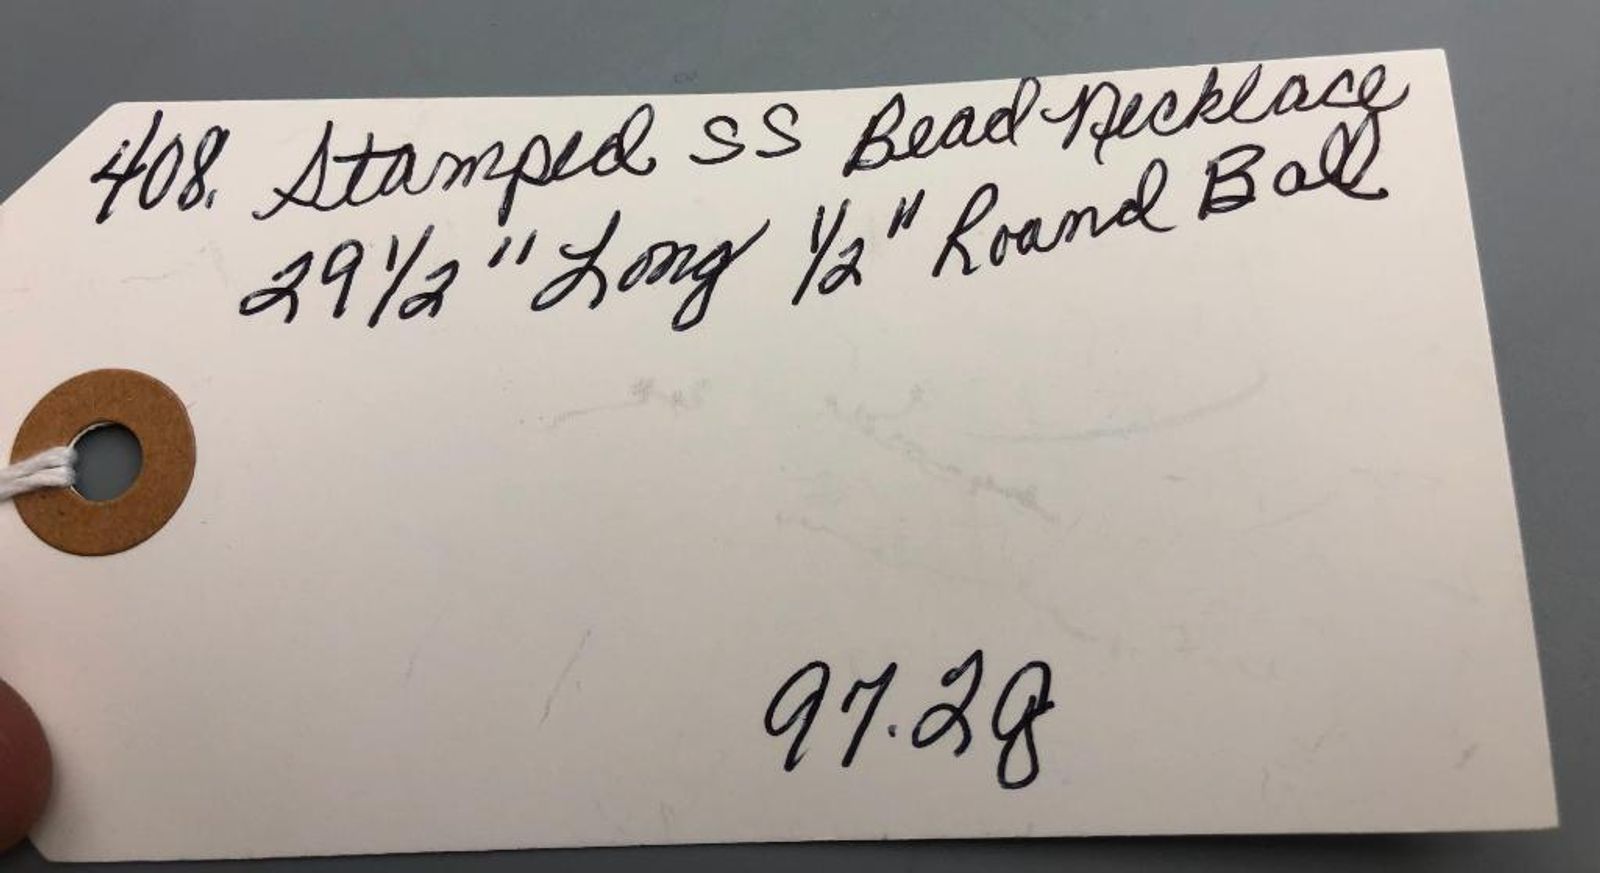 408. Stamped SS Bead Necklace
29 1/2" Long 1/2" Round Ball
97.2g